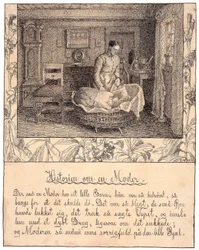 Historien om en Moder.
Der sad en Moder hos sit lille Barn, hun var så bedrøvet, så
bange for at det skulde dø. Det var så blegt, de små
havde lukket sig, det trak så sagte Veiret, og imel
lem med et dybt Drag, ligesom om det sukkede;
og Moderen så endnu mere sorrigfuld på den lille Sjæl.